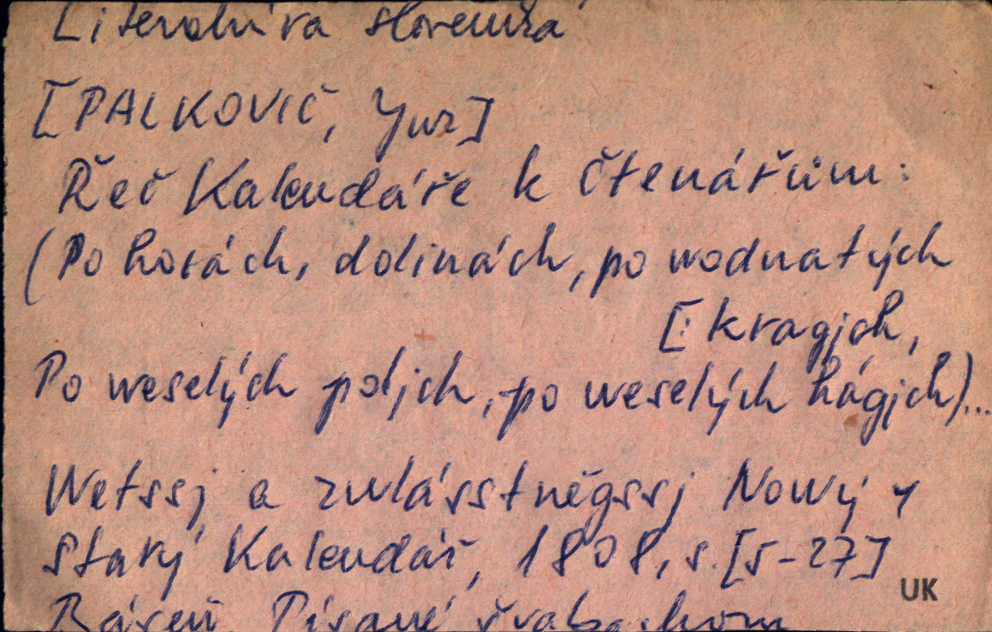 Literatúra slovenská
[PALKOVIČ, Jur]
Řeč Kalendáře k čtenářům:
(Po horách, dolinách, po wodnatých
[: kragjch,
Po weselých poljch, po weselých hágjch)...
Wetssj a zwlásstněgssj Nowý y
Starý Kalendář, 1808, s. [5-27]
UK
Báseň. Písané švabachom